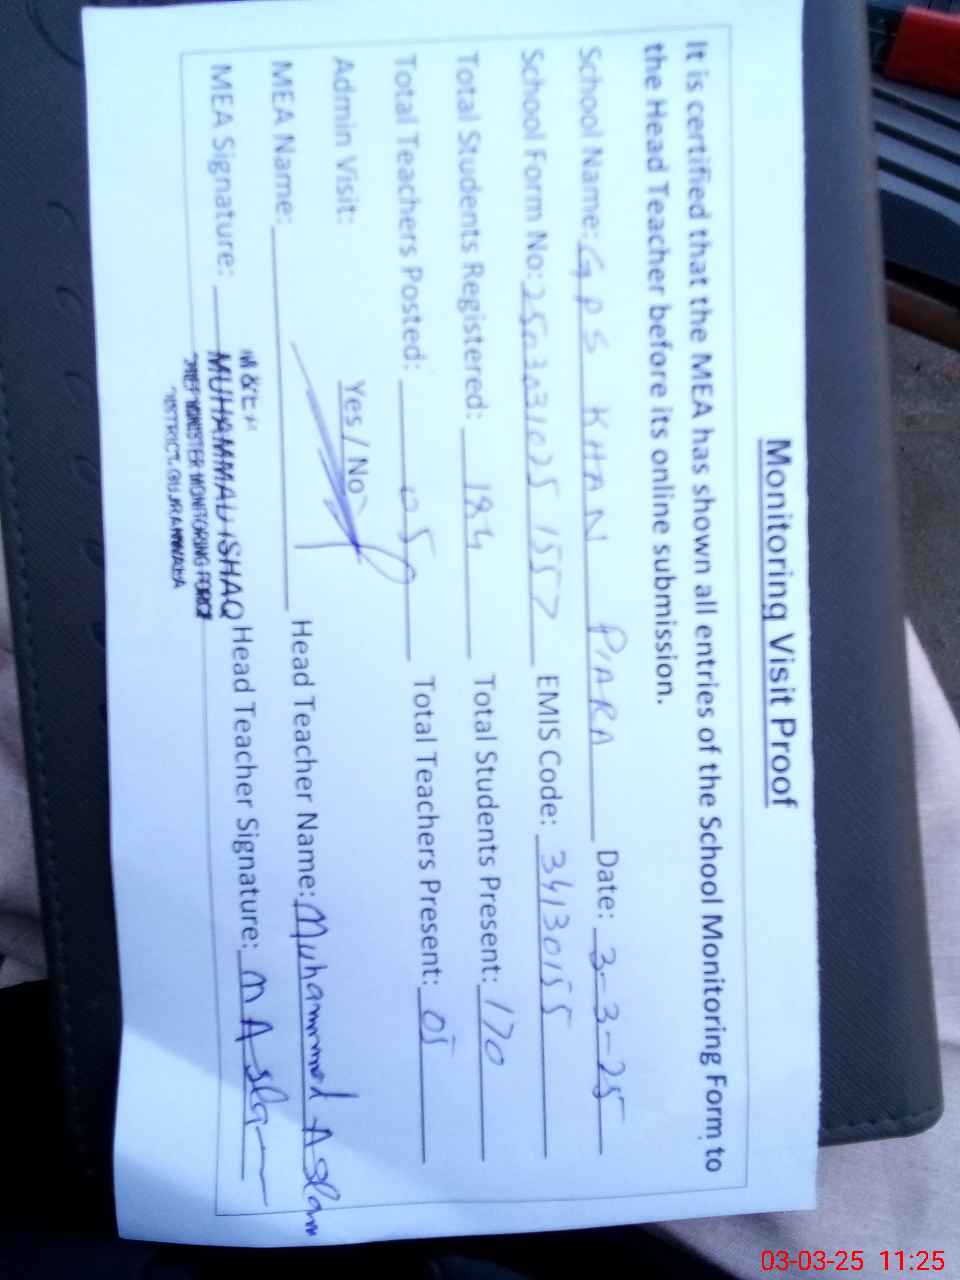 Monitoring Visit Proof
It is certified that the MEA has shown all entries of the School Monitoring Form to
the Head Teacher before its online submission.
School Name: GPS KHAN PIARA Date: 3-3-25
School Form No: 2503031025 1557 EMIS Code: 34130155
Total Students Registered: 184 Total Students Present: 170
Total Teachers Posted: 05 Total Teachers Present: 05
Admin Visit: Yes / No
MEA Name: Head Teacher Name: Muhammad Aslam
MEA Signature: Head Teacher Signature: M Aslam
MUHAMMAD ISHAQ
CHIEF MINISTER MONITORING FORCE
DISTRICT GUJRANWALA
03-03-25 11:25